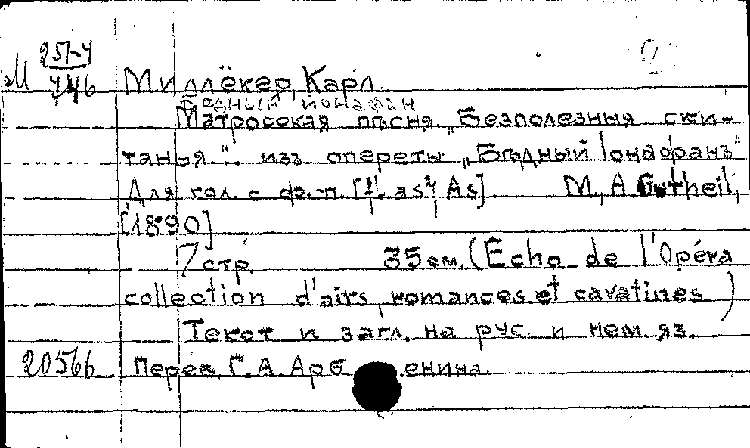 М 251-4
746
Миллёкер, Карл.
Бедный Йонафан
Матросская пѣсня „Безполезныя ски-
танья“. изъ опереты „Бѣдный Іонафанъ“
Для гол. с ф.-п. [1. as¹ As]. М., A. Gutheil,
[1890]
7 стр. 35 см. (Echo de l'Opéra
collection d'airs, romances et cavatines)
Текст и загл. на рус. и нем. яз.
20566 Перев. Г. А. Арб енина.